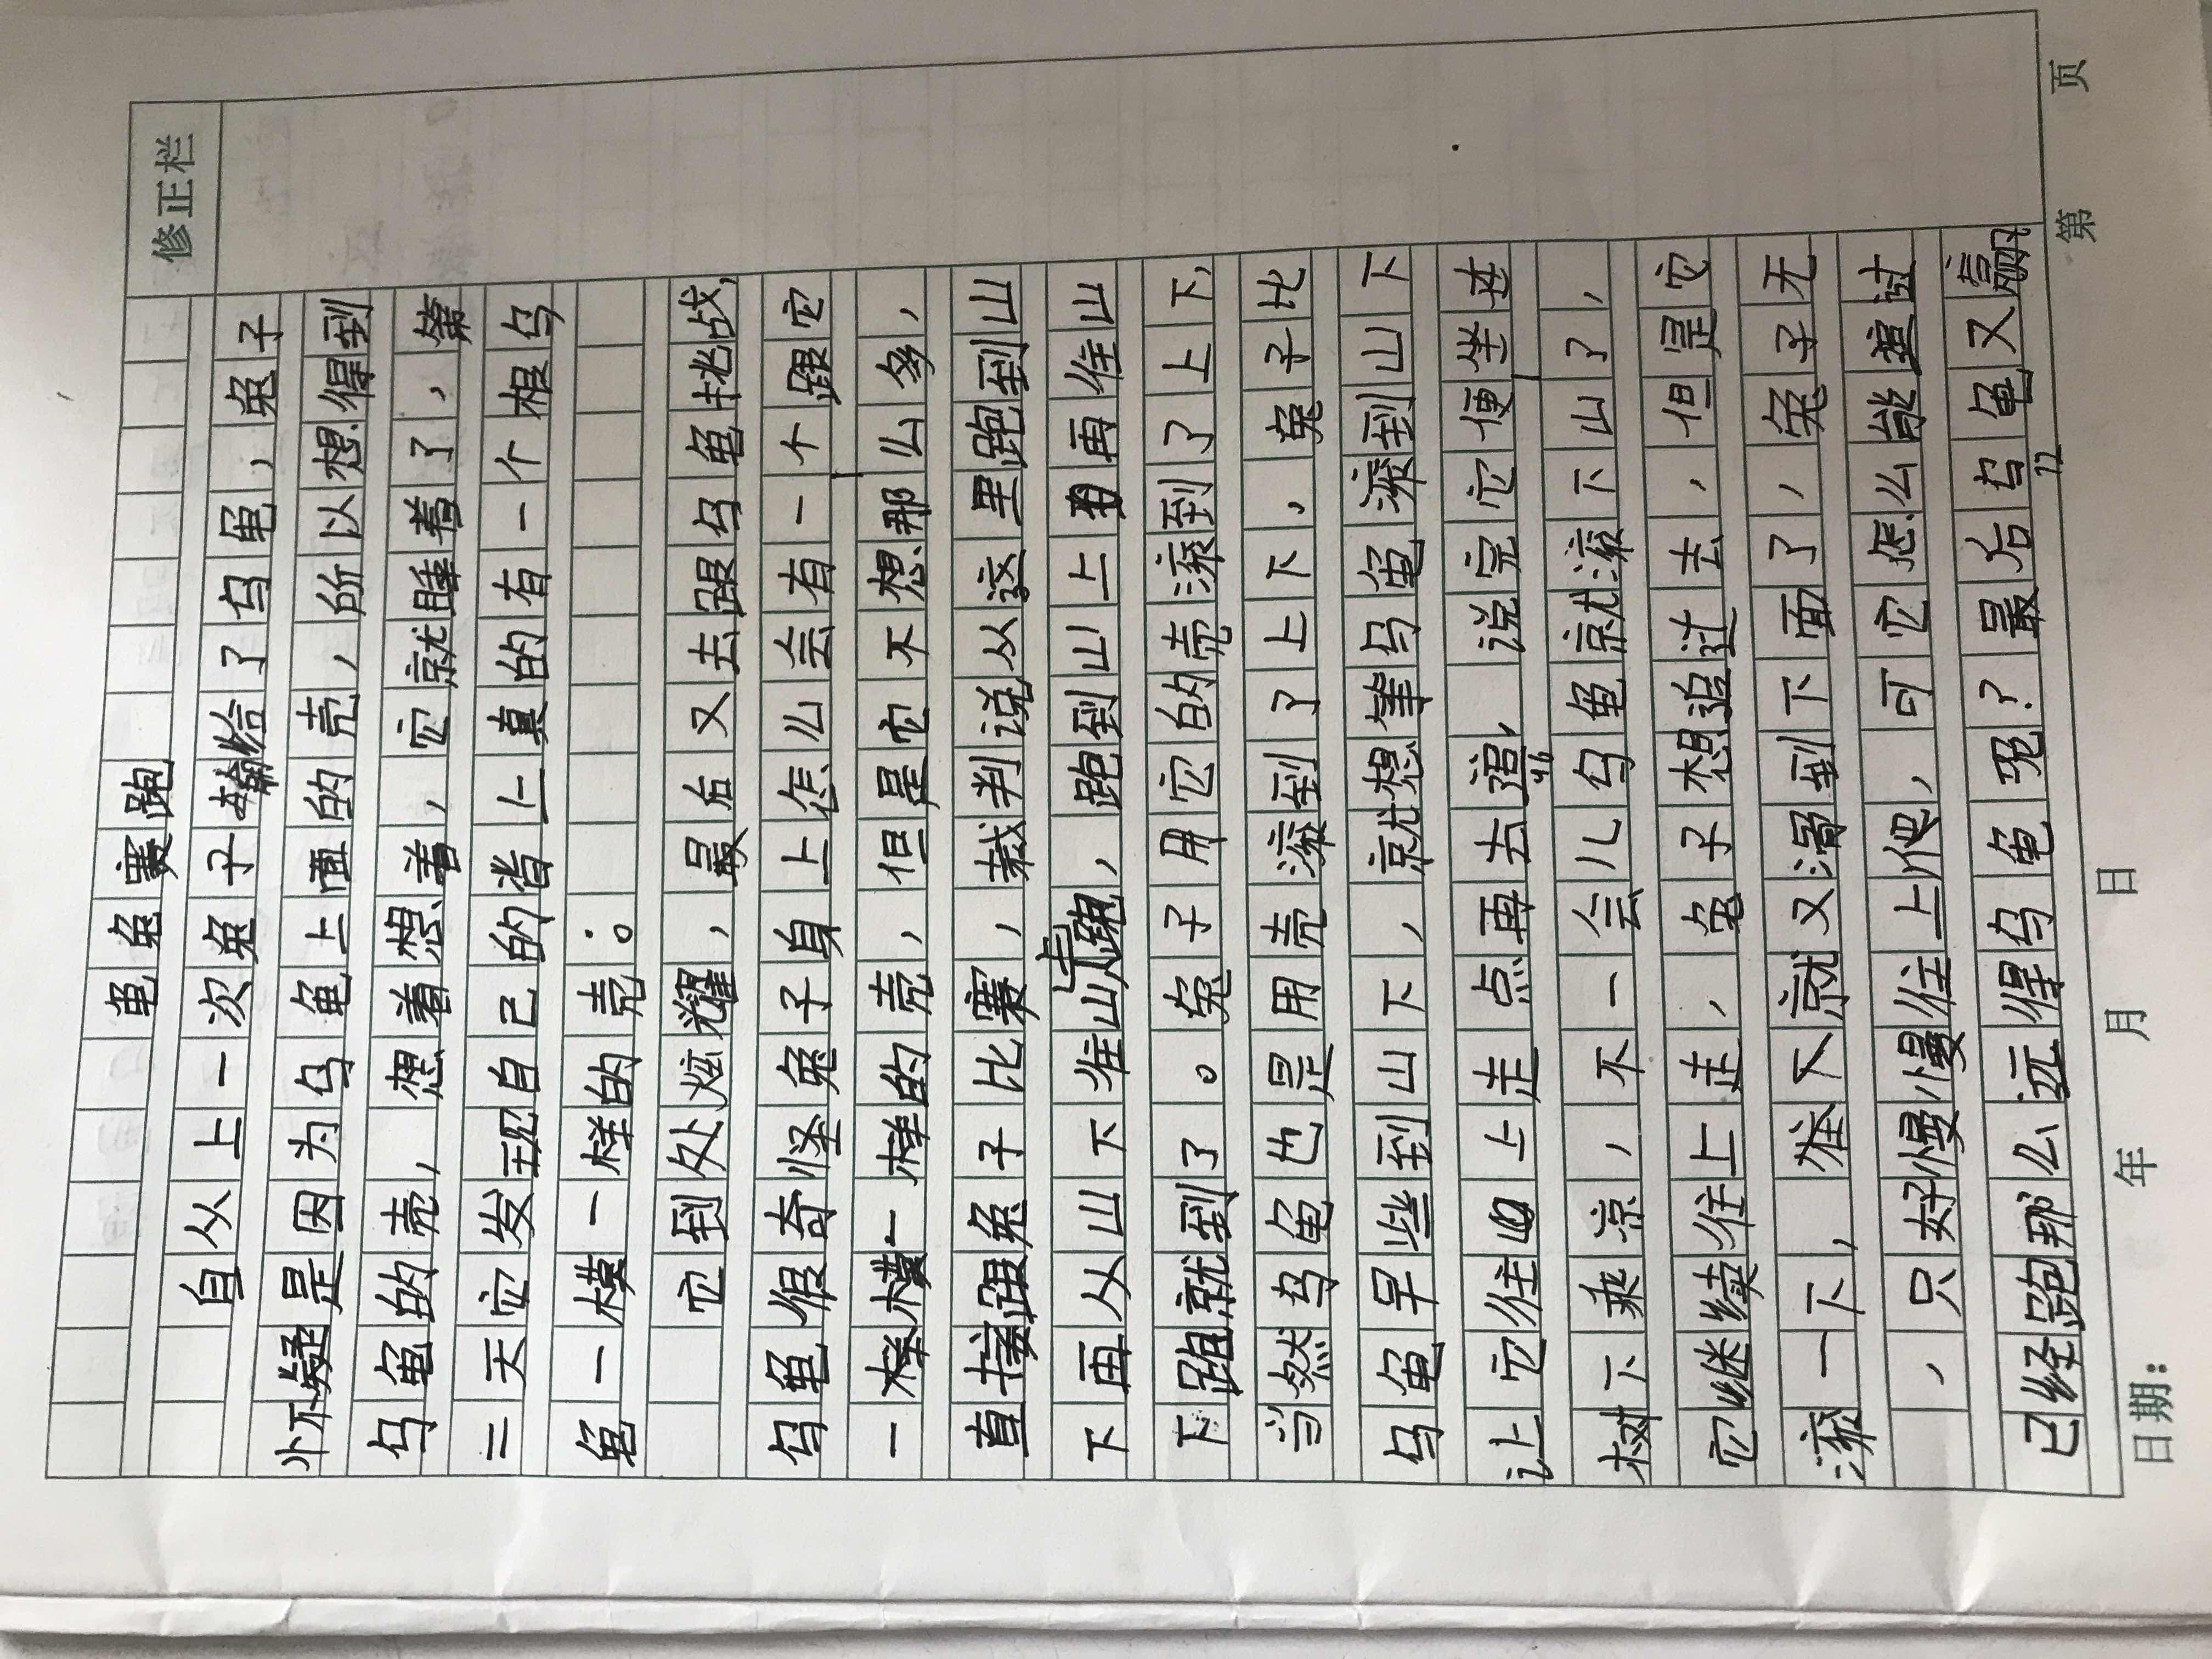 修正栏
龟兔赛跑
自从上一次兔子输给了乌龟,兔子
怀疑是因为乌龟上面的壳,所以想得到
乌龟的壳,想着想着,它就睡着了,第
二天它发现自己的背上真的有一个根乌
龟一模一样的壳。
它到处炫耀,最后又去跟乌龟挑战,
乌龟很奇怪兔子身上怎么会有一个跟它
一模一样的壳,但是它不想那么多,
直接跟兔子比赛,裁判说从这里跑到山
下再从山下往山上跑,跑到山上再往山
下跑就到了。兔子用它的壳滚到了上下,
当然乌龟也是用壳滚到了上下,兔子比
乌龟早些到山下,就想等乌龟滚到山下
让它往上走点再去追,说完它便坐在
树下乘凉,不一会儿乌龟就滚下山了,
它继续往上走,兔子想追过去,但是它
滚一下,往下就又滑到下面了,兔子无
,只好慢慢往上爬,可它怎么能追过
已经跑那么远得乌龟呢?最后乌龟又赢
日期: 年 月 日 第 页